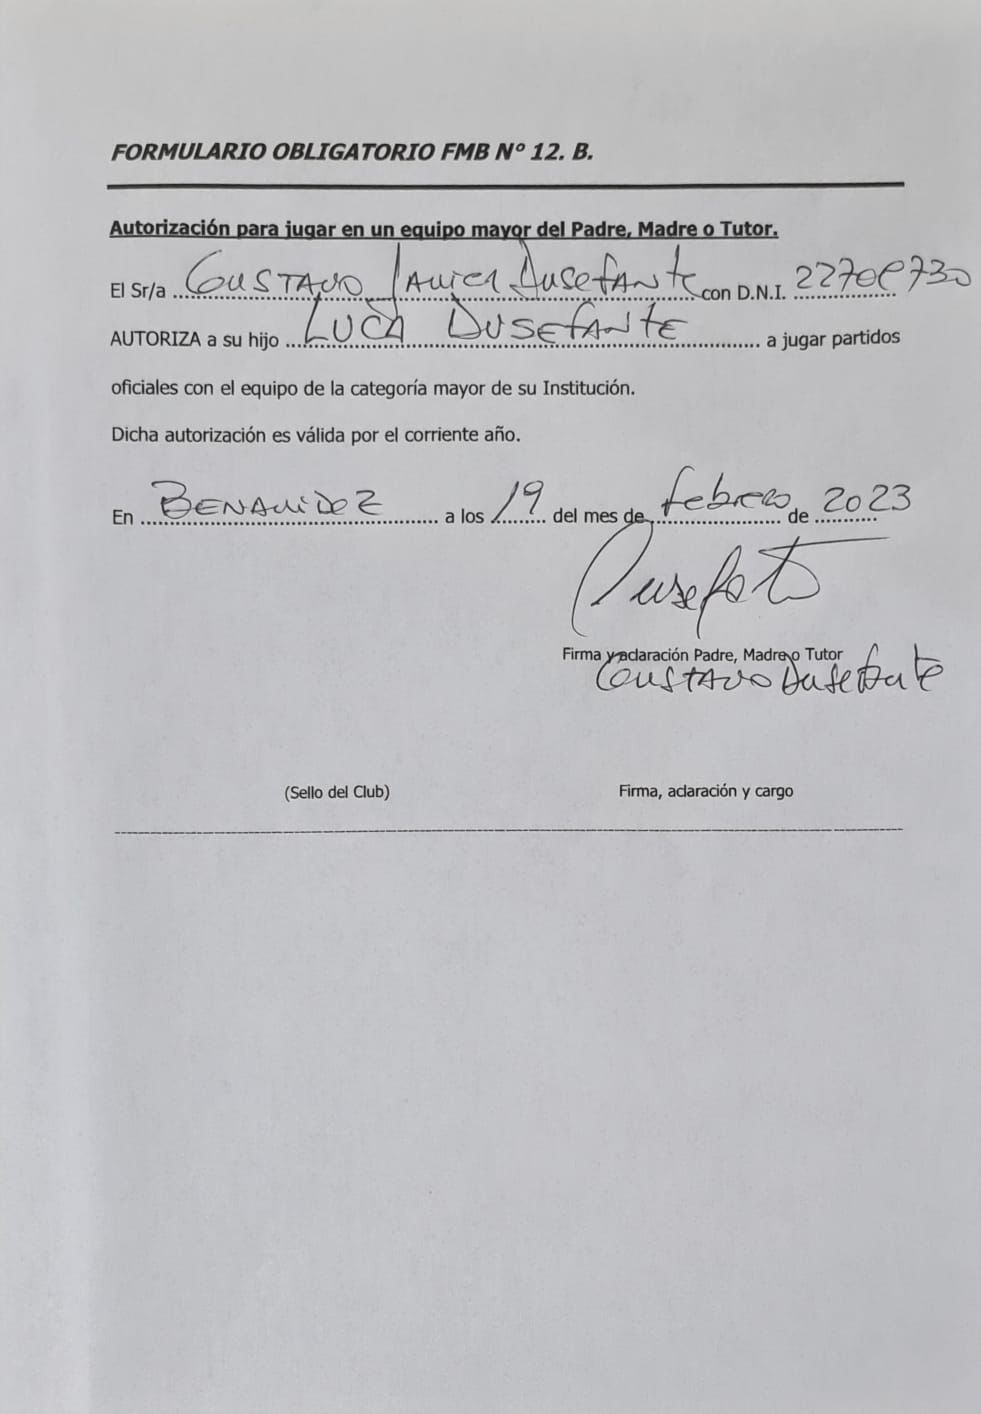 FORMULARIO OBLIGATORIO FMB Nº 12. B.
Autorización para jugar en un equipo mayor del Padre, Madre o Tutor.
El Sr/a Gustavo Javier Dusefante con D.N.I.
AUTORIZA a su hijo Luca Dusefante a jugar partidos
oficiales con el equipo de la categoría mayor de su Institución.
Dicha autorización es válida por el corriente año.
En BENAVIDEZ a los 19 del mes de febrero de 2023
Dusefante
Firma y aclaración Padre, Madre o Tutor
Gustavo Dusefante
(Sello del Club) Firma, aclaración y cargo